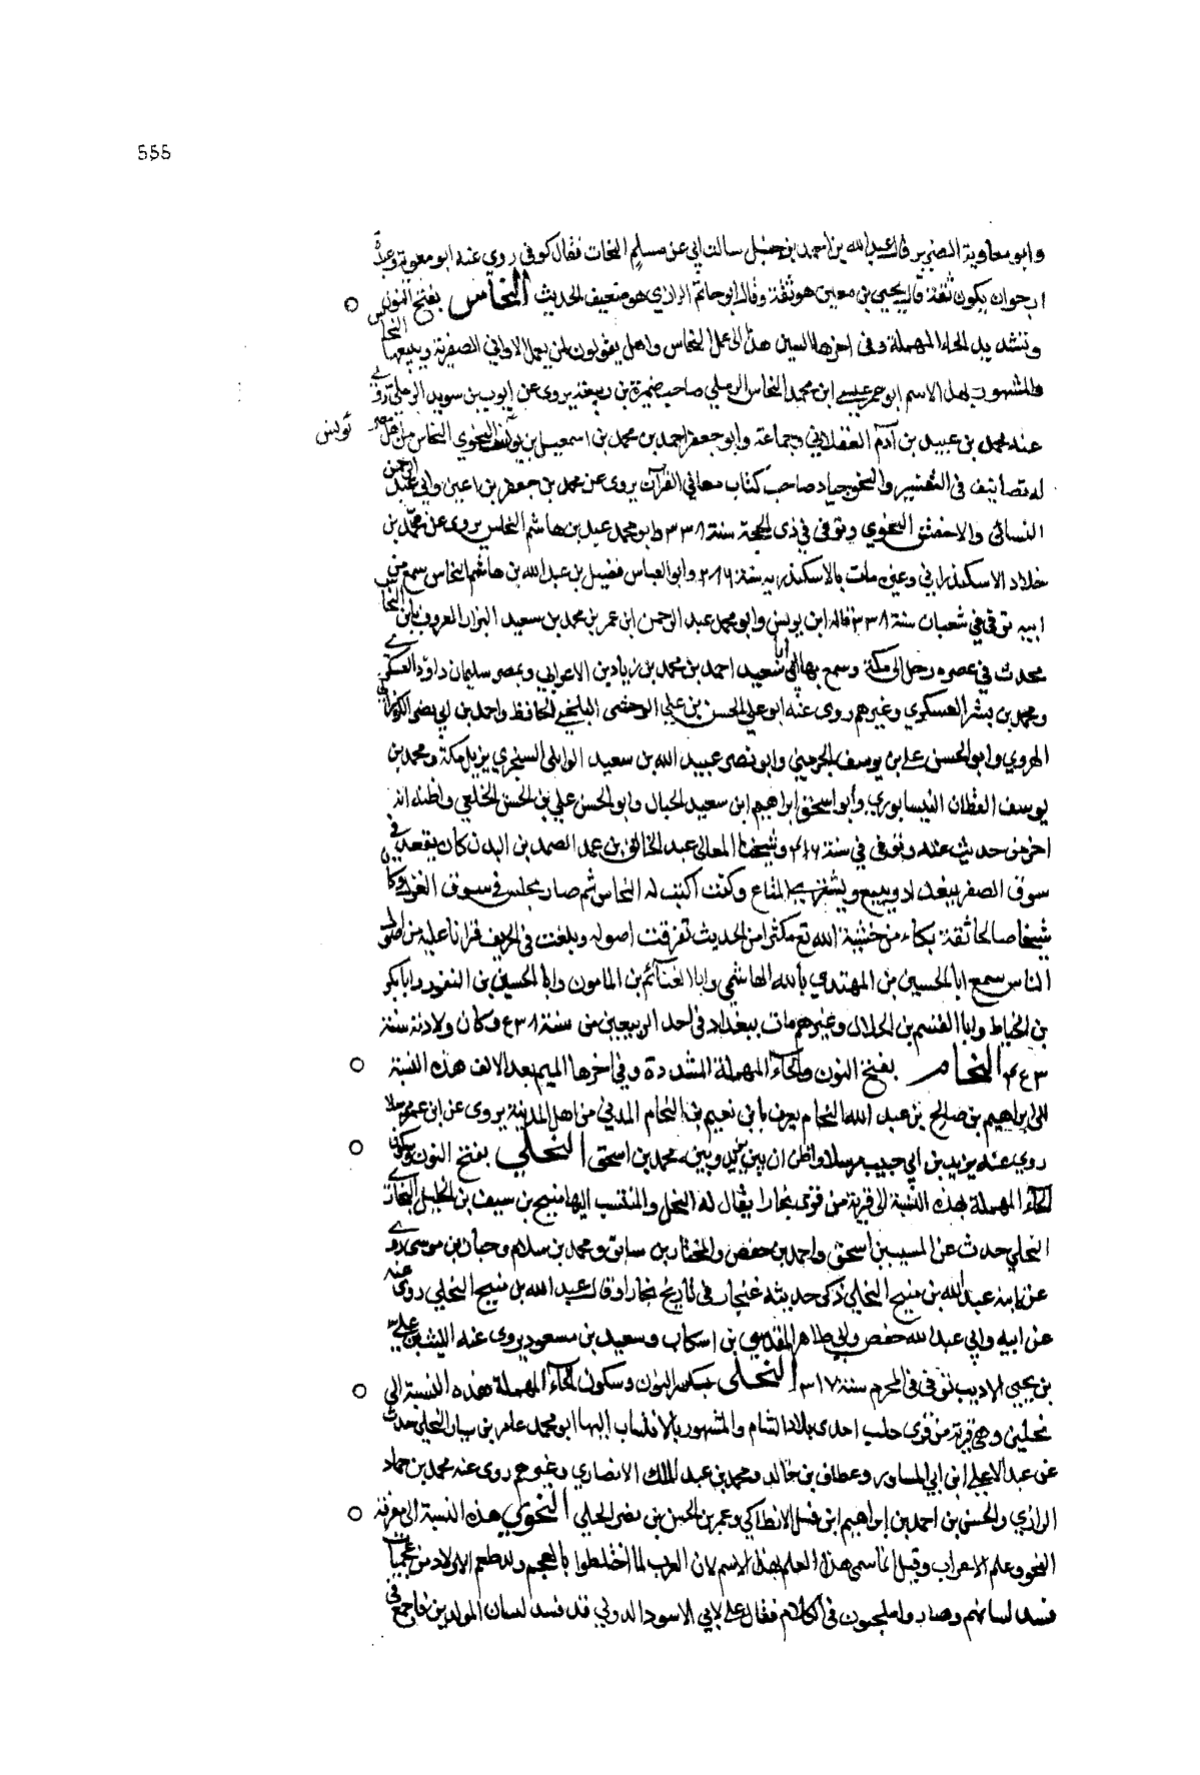 555
وابو معاوية الضرير قال عبد الله بن احمد بن حنبل سالت ابي عن مسلم النحات فقال كوفي روى عنه ابو معوية وعدة
ارجوان يكون ثقة قال يحيى بن معين هو ثقة وقال ابو حاتم الرازي هو ضعيف الحديث النحاس بفتح النون
وتشديد الحاء المهملة وفى اخرها السين هذا الى عمل النحاس واهل يقولون لمن يعمل الاواني الصفرية ويبيعها النحاس
والمشهور بهذا الاسم ابو عمير عيسى ابن محمد النحاس الرملي صاحب ضمرة بن ربيعة يروى عن ايوب بن سويد الرملي روى
عنه محمد بن عبيد بن آدم العسقلاني وجماعة وابو جعفر احمد بن محمد بن اسمعيل بن يونس النحوي النحاس من اهل مصر
يونس
له تصانيف فى التفسير والنحو جياد صاحب كتاب معاني القرآن يروى عن عمد بن جعفر بن اعين وابي عبد الرحمن
النسائى والاخفش النحوي وتوفى في ذى الحجة سنة ٣٣٨ وابو محمد عبد بن هاشم النحاس يروى عن محمد بن
خلاد الاسكندراني وغيره مات بالاسكندريه سنة ٢٨٦ وابو العباس فضيل بن عبد الله بن هاشم النحاس سمع من
ابيه توفي في شعبان سنة ٣٣٨ قاله ابن يونس وابو محمد عبد الرحمن ابن عمر بن محمد بن سعيد البزار المعروف بابن النحاس
محدث في عصره رحل الى مكة وسمع بها ابا سعيد احمد بن محمد بن زياد بن الاعرابي وبمصر سليمان داود العسكري
ومحمد بن بشر العسكري وغيرهم روى عنه ابو علي الحسن بن علي الوخشى البلخي الحافظ واحمد بن ابي نصر
الهروي وابو الحسن على بن يوسف الجرميني وابو نصر عبيد الله بن سعيد الوايلى السنجري نزيل مكة ومحمد بن
يوسف القطان النيسابوري وأبو اسحق ابراهيم ابن سعيد الحبال وابو الحسن علي بن الحسن الخلعي واظنه انه
اخر من حديث عنه وتوفى في سنة ٤١٦ وشيخنا المعالى عبد الخالق بن عمد الصمد بن البدن كان يقعد في
سوق الصفر ببغداد ويبيع ويشترى المتاع وكنت اكتب له النحاس ثم صار يجلس فى سوق الغزل وكان
شيخا صالحا ثقة بكاء من خشية الله تع مكثرا من الحديث تفرقت اصوله وبلغت فى الحريف قرانا عليه من اصول
الناس سمع ابا الحسين بن المهتدي بالله الهاشمي وابا الغنائم بن المامون وابا الحسين بن النقور وابا بكر
بن الخياط وابا القسم بن الخلال وغيرهم مات ببغداد فى احد الربيعين من سنة ٤٣٨ وكان ولادته سنة
٤٤٣ النحام بفتح النون والحاء المهملة المشددة وفي اخرها الميم بعد الالف هذه النسبة
الى ابراهيم بن صالح بن عبد الله النحام يعرف بابن نعيم بن النحام المدني من اهل المدينة يروى عن ابن عمر مرسلا
روى عنه يزيد بن ابي حبيب مرسلا واظن ان بين يزيد وبينه محمد بن اسحق النحلي بفتح النون وسكون
الحاء المهملة هذه النسبة الى قرية من قرى بخارا يقال له النحل والمنتسب اليها منيح بن سيف بن الخليل البخارى
النحلي حدث عن المسيب بن اسحق واحمد بن حفص والمختار بن سابق ومحمد بن سلام وحبان بن موسى روى
عن ابنه عبد الله بن منيح النحلي ذكر حديثه غنجار فى تاريخ بخارا وقال عبد الله بن منيح النحلي روى عنه
عن ابيه وابي عبد الله حفص وابي طاهر المقدسي بن اسكاب وسعيد بن مسعود يروى عنه الليث بن علي
بن يحيى الاديب توفى فى المحرم سنة ٣١٧ النحلي بكسر النون وسكون الحاء المهملة هذه النسبة الى
نحلين وهي قرية من قرى حلب احدى بلاد الشام والمشهور بالانتساب اليها ابو محمد عامر بن سيار النحلي حدث
عن عبد الاعلى ابن ابي المساور وعطاف بن خالد ومحمد بن عبد الملك الانصاري وغيرهم روى عنه محمد بن حماد
الرازي والحسن بن احمد بن ابراهيم ابن فيل الانطاكي وعمر بن الحسن بن نصر الحلبي النحوي هذه النسبة الى معرفة
النحو وعلم الاعراب وقيل انما سمى هذا العلم بهذا الاسم لان العرب لما اختلطوا بالعجم ولد طعم الاولاد من عجميات
فسد لسانهم وصاروا يلحنون فى الكلام فقال على لابي الاسود الدولي قد فسد لسان المولدين فاجمع في